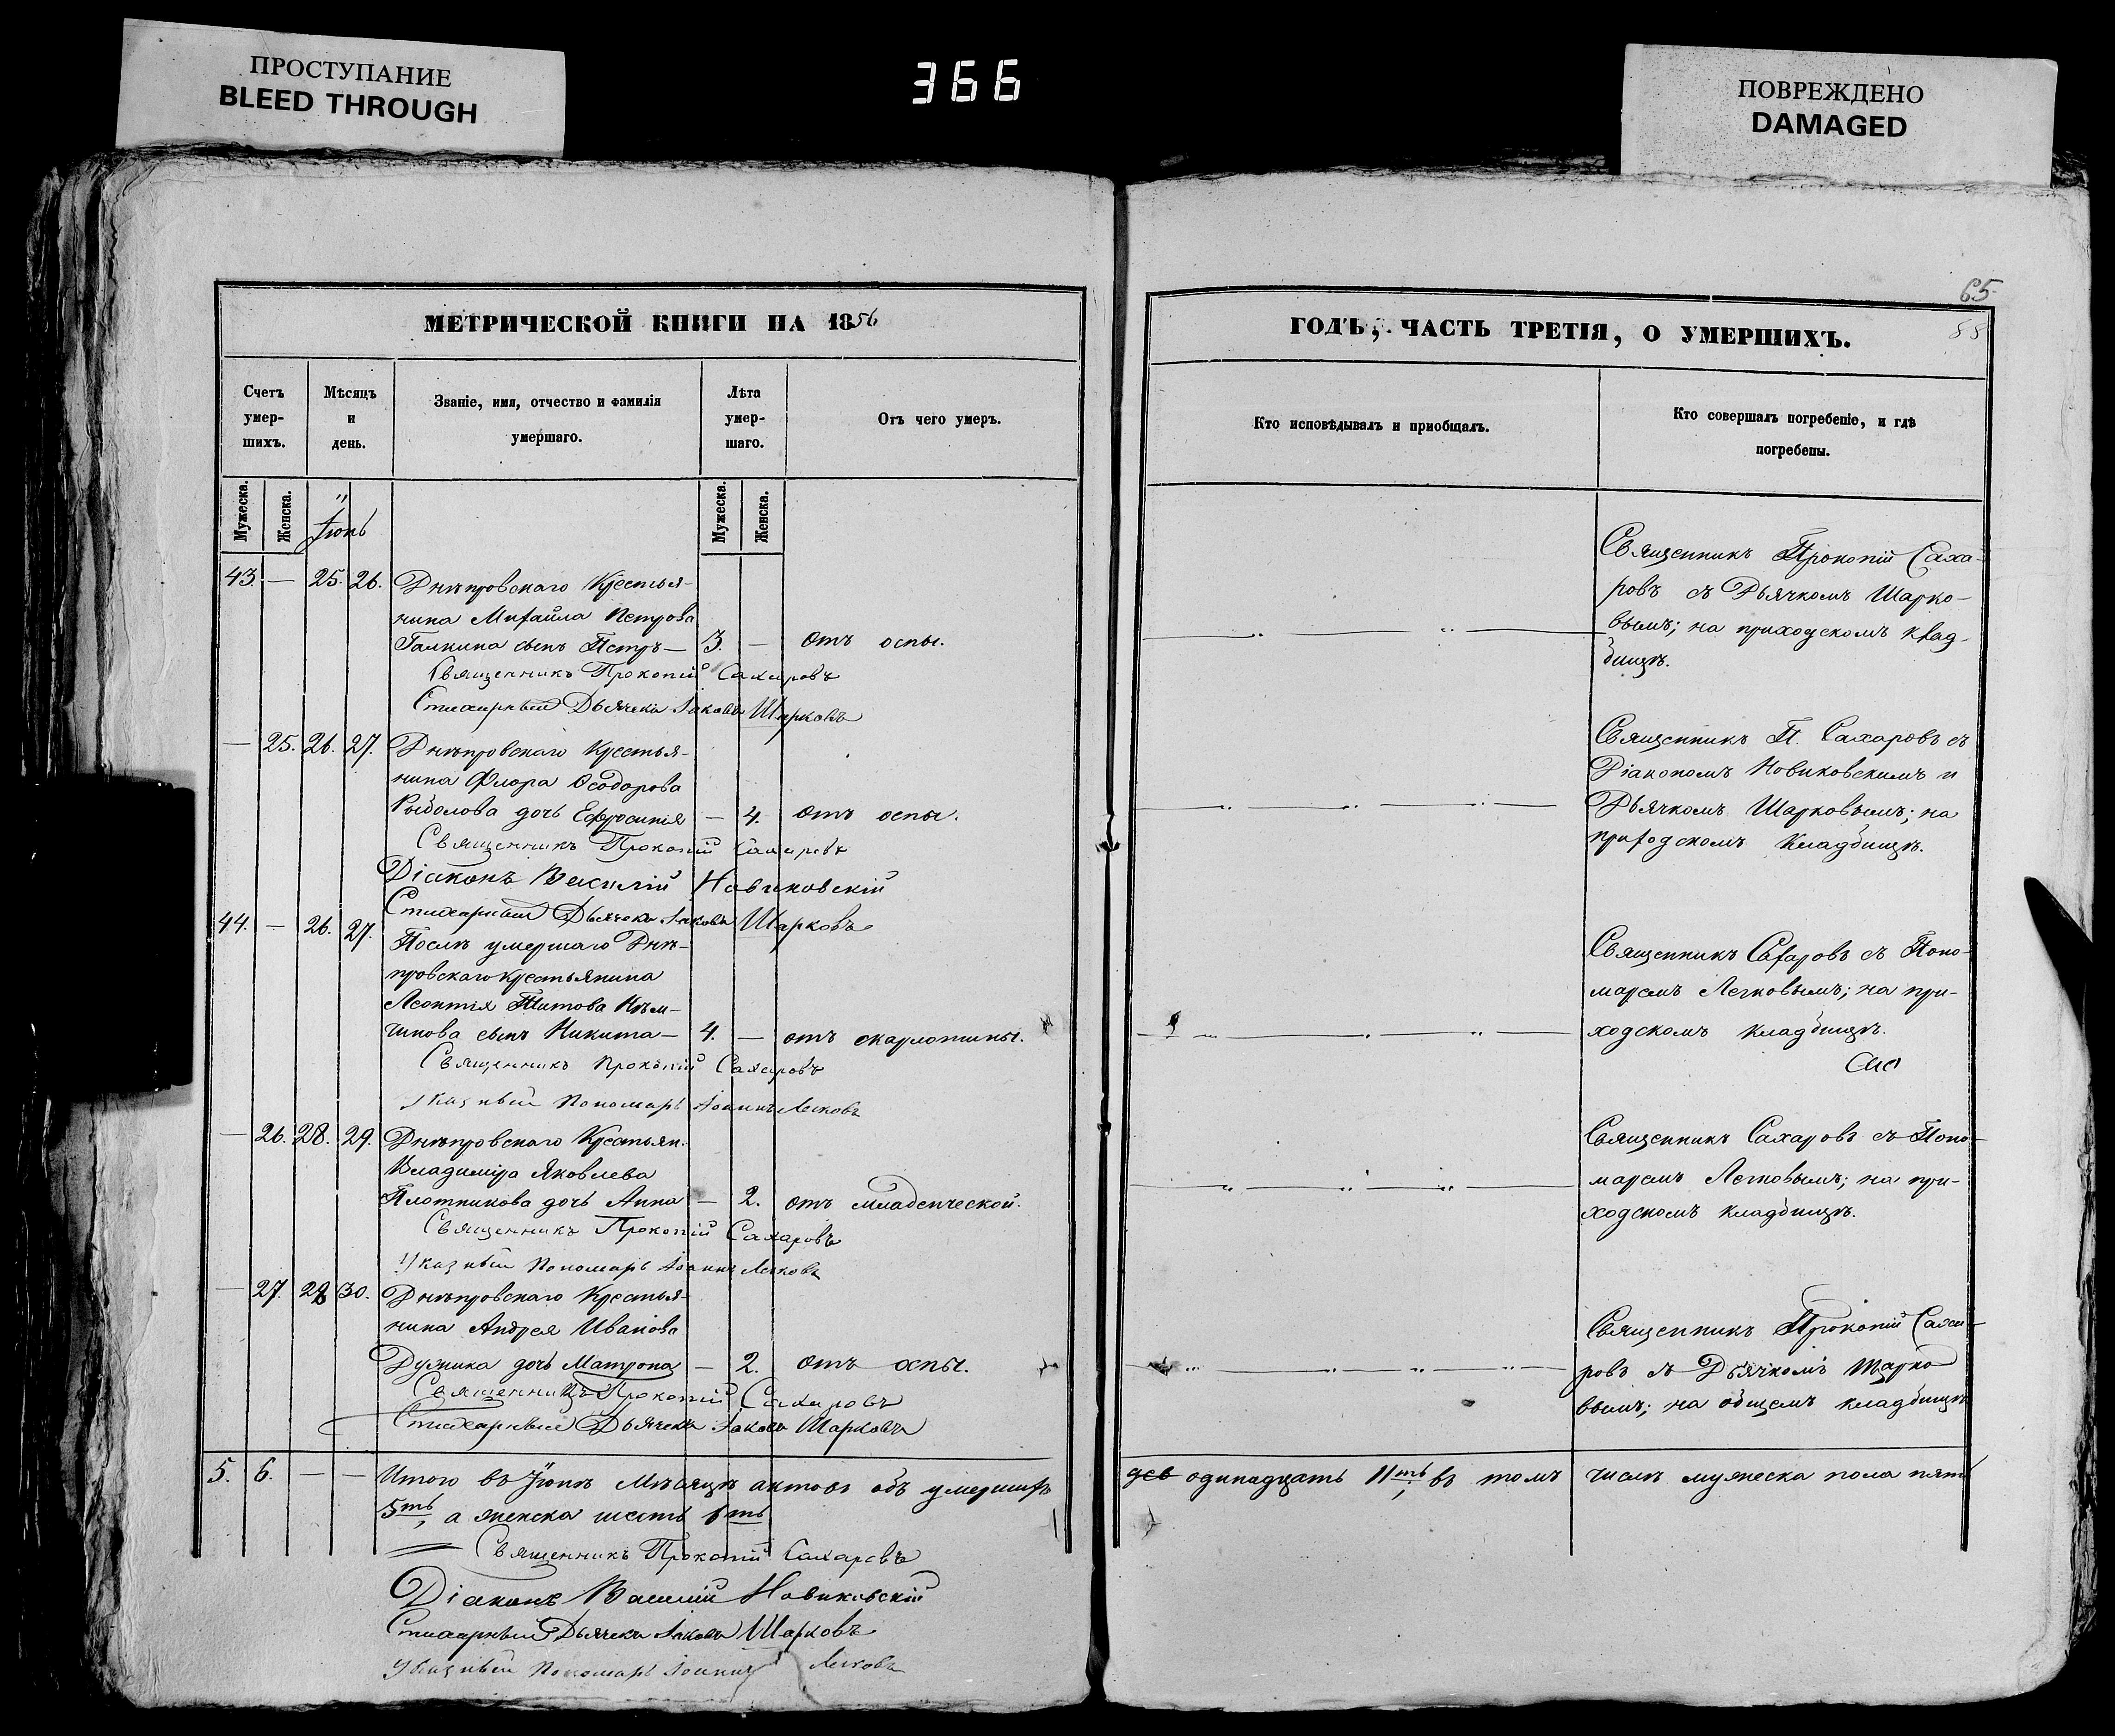 ПРОСТУПАНИЕ
BLEED THROUGH
366
ПОВРЕЖДЕНО
DAMAGED
МЕТРИЧЕСКОЙ КНИГИ НА 1856
Счетъ
умер-
шихъ.
Мѣсяцъ
и
день.
Званіе, имя, отчество и фамилія
умершаго.
Лѣта
умер-
шаго.
Отъ чего умеръ.
Мужеска.
Женска.
Іюнь
Мужеска.
Женска.
43. — 25. 26. Днѣпровскаго Крестья-
нина Михайла Петрова
Галкина сынъ Петръ — 3. — Отъ оспы.
Священникъ Прокопій Сахаровъ
Стихарный Дьячекъ Іаковъ Шарковъ
— 25. 26. 27. Днѣпровскаго Крестья-
нина Флора Ѳеодорова
Рыболова дочь Ефросинія — 4. Отъ оспы.
Священникъ Прокопій Сахаровъ
Діаконъ Василій Новиковскій
Стихарный Дьячекъ Іаковъ Шарковъ
44. — 26. 27.
Послѣ умершаго Днѣ-
провскаго крестьянина
Леонтія Титова Нѣм-
чинова сынъ Никита — 4. — отъ скарлотины.
Священникъ Прокопій Сахаровъ
Указный Пономарь Іоаннъ Легковъ
— 26. 28. 29. Днѣпровскаго Крестьян.
Владиміра Яковлева
Плотникова дочь Анна — 2. отъ младенческой.
Священникъ Прокопій Сахаровъ
Указный Пономарь Іоаннъ Легковъ
— 27. 28 30. Днѣпровскаго Крестья-
нина Андрея Иванова
Дужника дочь Матрона — 2. Отъ оспы.
Священникъ Прокопій Сахаровъ
Стихарный Дьячекъ Іаковъ Шарковъ
5. 6. — — Итого въ Іюнѣ Мѣсяцѣ актовъ объ умершихъ
5ть, а женска шесть 6ть
Священникъ Прокопій Сахаровъ
Діаконъ Василій Новиковскій
Стихарный Дьячекъ Іаковъ Шарковъ
Указный Пономарь Іоаннъ Легковъ
65
ГОДЪ, ЧАСТЬ ТРЕТІЯ, О УМЕРШИХЪ.
Кто исповѣдывалъ и пріобщалъ.
Кто совершалъ погребеніе, и гдѣ
погребены.
Священникъ Прокопій Саха-
ровъ съ Дьячкомъ Шарко-
вымъ; на приходскомъ клад-
бищѣ.
Священникъ П. Сахаровъ съ
Діакономъ Новиковскимъ и
Дьячкомъ Шарковымъ; на
приходскомъ кладбищѣ.
Священникъ Сахаровъ съ Поно-
маремъ Легковымъ; на при-
ходскомъ кладбищѣ.
Священникъ Сахаровъ съ Поно-
маремъ Легковымъ; на при-
ходскомъ кладбищѣ.
Священникъ Прокопій Саха-
ровъ съ Дьячкомъ Шарко
вымъ; на общемъ кладбищѣ
одинадцать 11ть, въ томъ числѣ мужеска пола пять